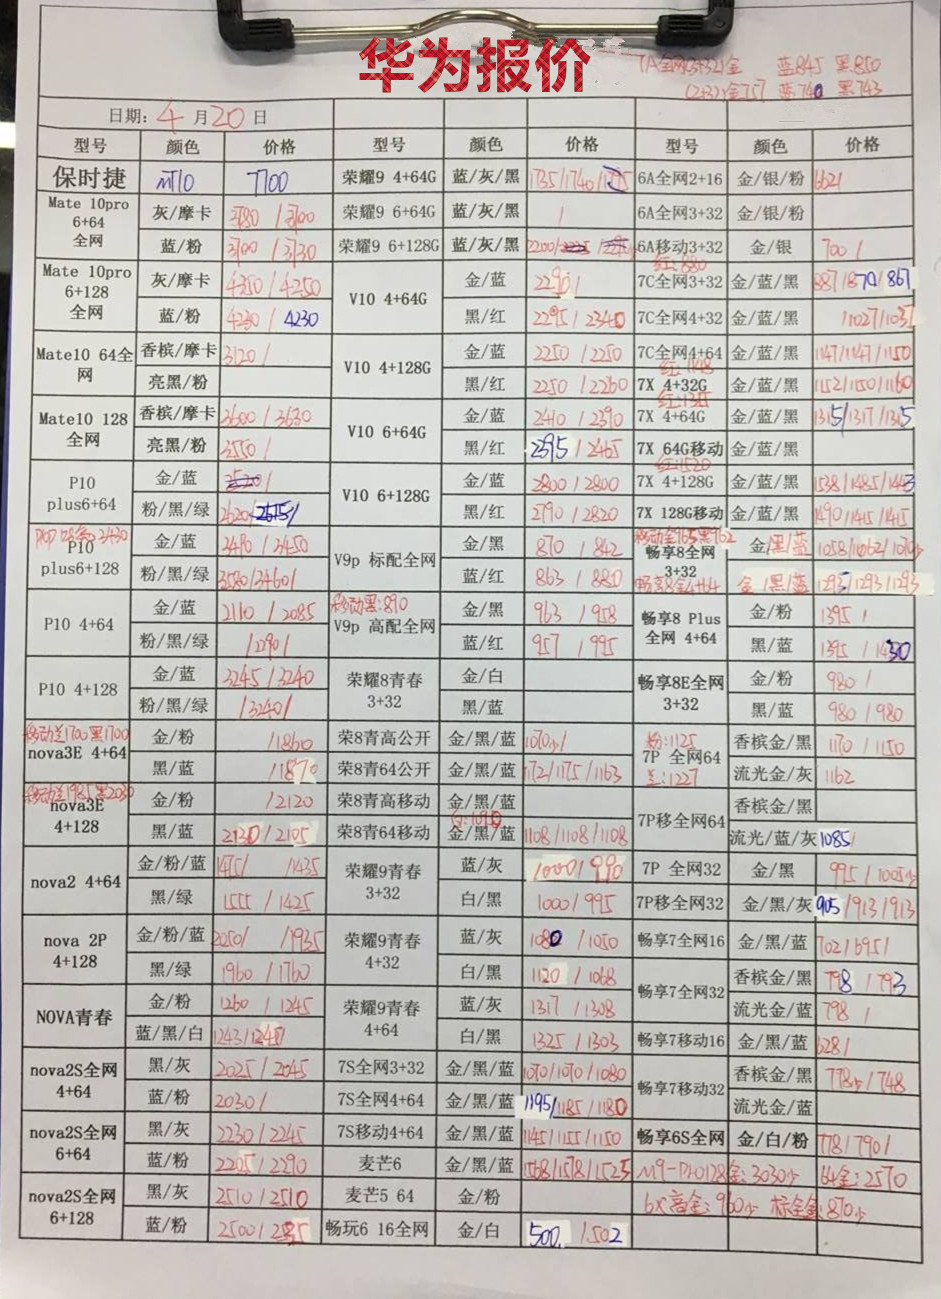 华为报价
7A全网(3+32)金 蓝:845 黑:850
(2+32)金757 蓝:740 黑:743
日期: 4 月 20 日
型号 颜色 价格 型号 颜色 价格 型号 颜色 价格
保时捷 MT10 7100 荣耀9 4+64G 蓝/灰/黑 1735/1740/ 6A全网2+16 金/银/粉 662/
Mate 10pro 6+64 全网 灰/摩卡 /3700 荣耀9 6+64G 蓝/灰/黑 / 6A全网3+32 金/银/粉
蓝/粉 3700 /3730 荣耀9 6+128G 蓝/灰/黑 2200/ 6A移动3+32 金/银 700/
红:880
Mate 10pro 6+128 全网 灰/摩卡 4350/4250 V10 4+64G 金/蓝 2290/ 7C全网3+32 金/蓝/黑 887/870/867
蓝/粉 4230/4230 黑/红 2295/2340 7C全网4+32 金/蓝/黑 /1027/1037
Mate10 64全网 香槟/摩卡 3120/ V10 4+128G 金/蓝 2250/2250 7C全网4+64 金/蓝/黑 1147/1147/1150
红:1148
亮黑/粉 黑/红 2250/2260 7X 4+32G 金/蓝/黑 1152/1150/1160
红:1315
Mate10 128全网 香槟/摩卡 3600/3630 V10 6+64G 金/蓝 2410/2390 7X 4+64G 金/蓝/黑 1315/1317/1315
亮黑/粉 3550/ 黑/红 2395/2465 7X 64G移动 金/蓝/黑
红:1520
P10 plus6+64 金/蓝 3520/ V10 6+128G 金/蓝 2800/2800 7X 4+128G 金/蓝/黑 1538/1485/1443
粉/黑/绿 2620/2615/ 黑/红 2790/2820 7X 128G移动 金/蓝/黑 1490/1415/1415
P10 plus6+128 金/蓝 3480/3450 V9p 标配全网 金/黑 870/842 移动金765黑762 畅享8全网 3+32 金/黑/蓝 1058/1062/1070少
粉/黑/绿 3580/3460/ 蓝/红 863/880 畅享8全4+64 金/黑/蓝 1293/1293/1293
P10 4+64 金/蓝 2110/2085 移动黑:890 V9p 高配全网 金/黑 963/958 畅享8 Plus 全网 4+64 金/粉 1395/
粉/黑/绿 /2290/ 蓝/红 957/995 黑/蓝 1395/1430
P10 4+128 金/蓝 3245/3240 荣耀8青春 3+32 金/白 畅享8E全网 3+32 金/粉 980/
粉/黑/绿 /3240/ 黑/蓝 黑/蓝 980/980
移动蓝1700黑1700 nova3E 4+64 金/粉 /1860 荣8青高公开 金/黑/蓝 1070少/ 粉:1125 7P 全网64 兰:1227 香槟金/黑 1170/1150
黑/蓝 /1870 荣8青64公开 金/黑/蓝 1172/1175/1163 流光金/灰 1162
移动蓝1985黑2030 nova3E 4+128 金/粉 /2120 荣8青高移动 金/黑/蓝 7P移全网64 香槟金/黑
白:1090
黑/蓝 2120/2105 荣8青64移动 金/黑/蓝 1108/1108/1108 流光/蓝/灰 1085/
nova2 4+64 金/粉/蓝 1495/ /1435 荣耀9青春 3+32 蓝/灰 1000/990 7P 全网32 金/黑 995/1005少
黑/绿 1555/1425 白/黑 1000/995 7P移全网32 金/黑/灰 905/913/913
nova 2P 4+128 金/粉/蓝 2050/ /1935 荣耀9青春 4+32 蓝/灰 1080/1050 畅享7全网16 金/黑/蓝 702/695/
黑/绿 1960/1760 白/黑 1120/1068 畅享7全网32 香槟金/黑 798/793
NOVA青春 金/粉 1260/1245 荣耀9青春 4+64 蓝/灰 1317/1308 流光金/蓝 798/
蓝/黑/白 1243/1240/ 白/黑 1325/1303 畅享7移动16 金/黑/蓝 628/
nova2S全网 4+64 黑/灰 2025/2045 7S全网3+32 金/黑/蓝 1070/1070/1080 畅享7移动32 香槟金/黑 778少/748
蓝/粉 2030/ 7S全网4+64 金/黑/蓝 1195/1185/1180 流光金/蓝
nova2S全网 6+64 黑/灰 2230/2245 7S移动4+64 金/黑/蓝 1145/1155/1150 畅享6S全网 金/白/粉 778/790/
蓝/粉 2205/2290 麦芒6 金/黑/蓝 1568/1578/1525 M9-Pro128金:3030少 64金:2570
nova2S全网 6+128 黑/灰 2510/2510 麦芒5 64 金/粉 6X高金:960少 标全金:870少
蓝/粉 2500/ 畅玩6 16全网 金/白 500/502